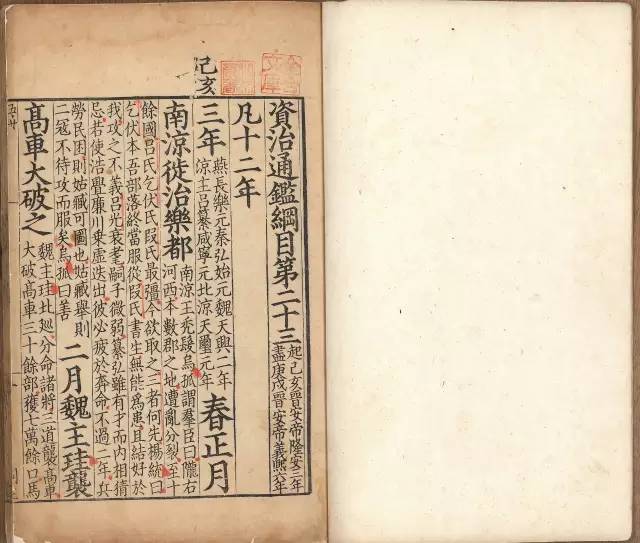 資治通鑑綱目第二十三
起己亥晉安帝隆安三年
盡庚戌晉安帝義熙六年
凡十二年
己亥
三年
燕長樂元秦弘始元魏天興二年
涼王呂纂咸寧元北涼天璽元年
春正月
南涼徙治樂都
南涼王禿髮烏孤謂羣臣曰隴右
河西本數郡之地遭亂分裂至十
餘國呂氏乞伏氏段氏最彊今欲取之三者何先楊統曰
乞伏本吾部落終當服從段氏書生無能爲患且結好於
我攻之不義呂光衰耄嗣子微弱纂弘雖有才而內相猜
忌若使浩亹廉川乗虛迭出彼必疲於奔命不過二年兵
勞民困則姑臧可圖也姑臧舉則
二寇不待攻而服矣烏孤曰善
二月魏主珪襲
高車大破之
魏主珪北巡分命諸將三道襲高車
大破高車三十餘部獲七萬餘口馬